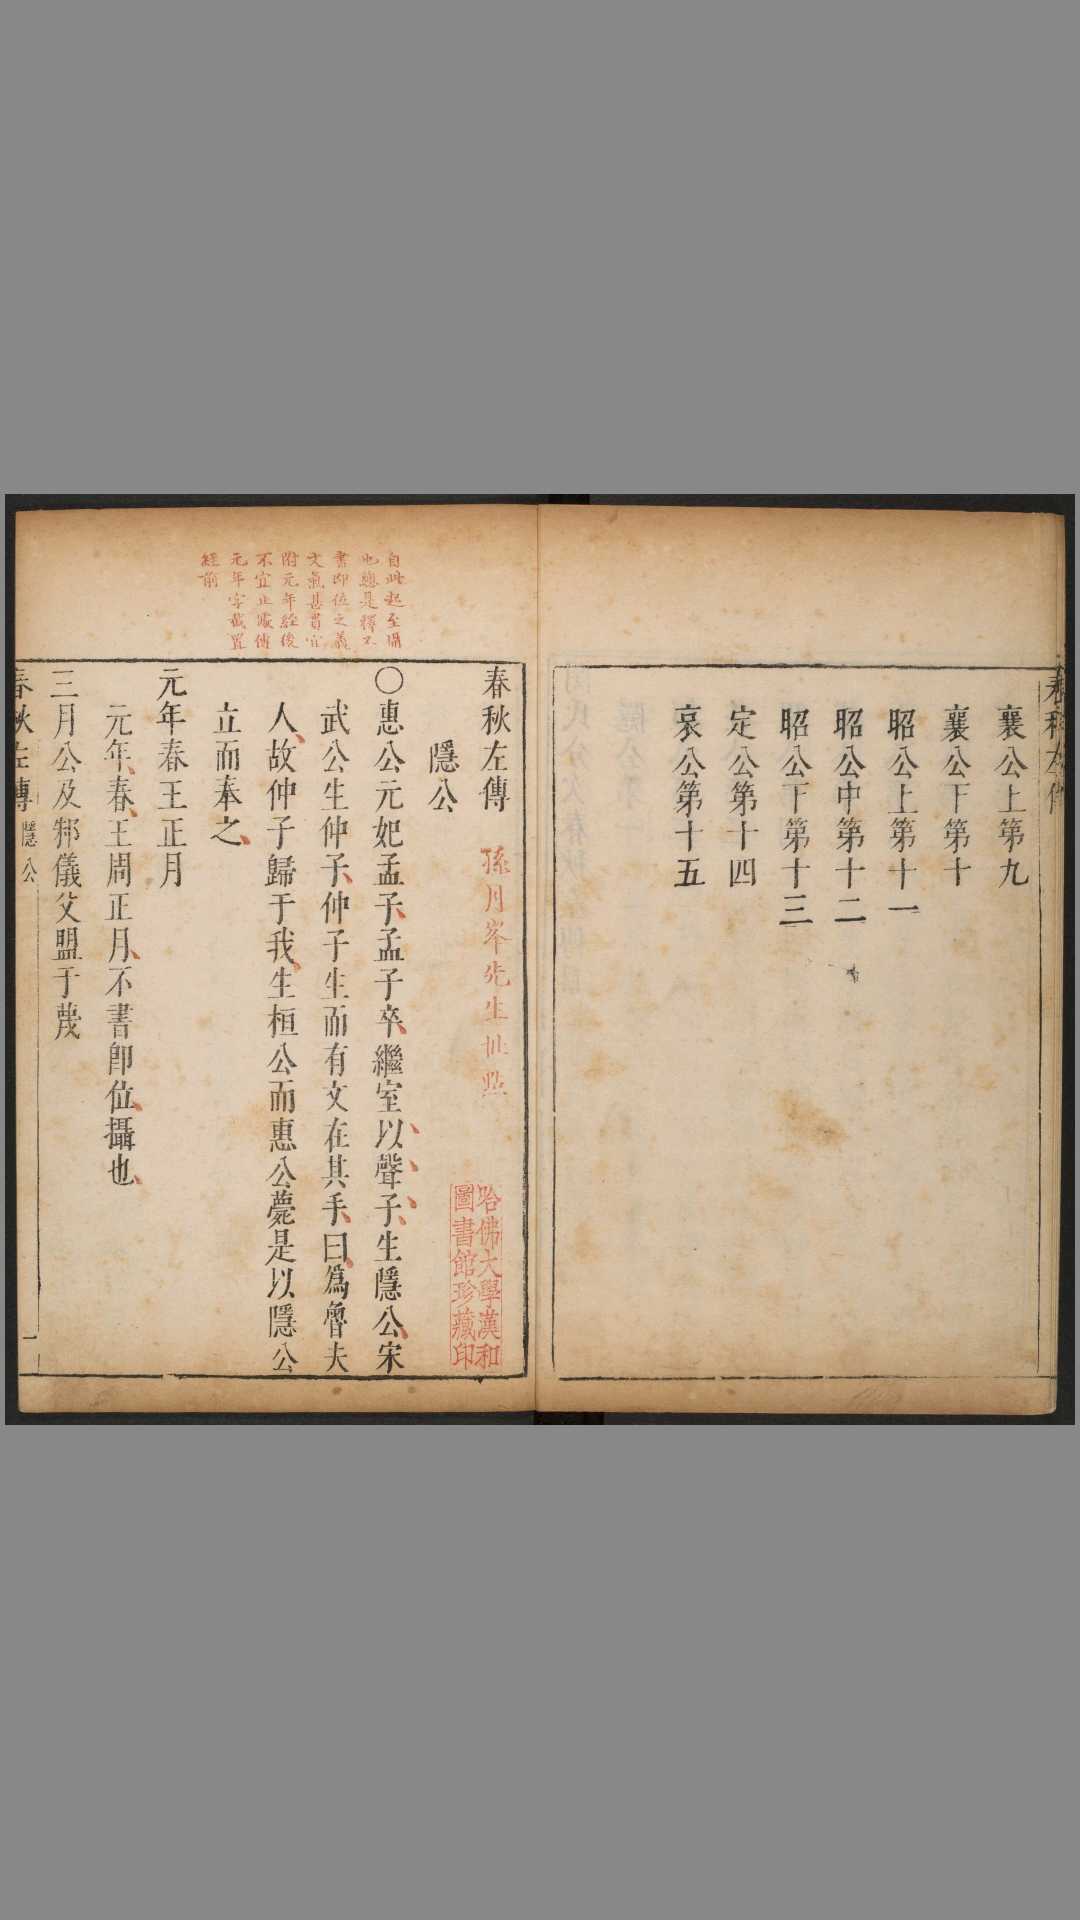 襄公上第九
襄公下第十
昭公上第十一
昭公中第十二
昭公下第十三
定公第十四
哀公第十五
自此起至攝
也總是釋不
書即位之義
文氣甚貫宜
附元年經後
不宜止據傳
元年字截置
經前
春秋左傳 孫月峯先生批點
哈佛大學漢和
圖書館珍藏印
隱公
〇惠公元妃孟子孟子卒繼室以聲子生隱公宋
武公生仲子仲子生而有文在其手曰爲魯夫
人故仲子歸于我生桓公而惠公薨是以隱公
立而奉之
元年春王正月
元年春王周正月不書卽位攝也
三月公及邾儀父盟于蔑
春秋左傳 隱公 一